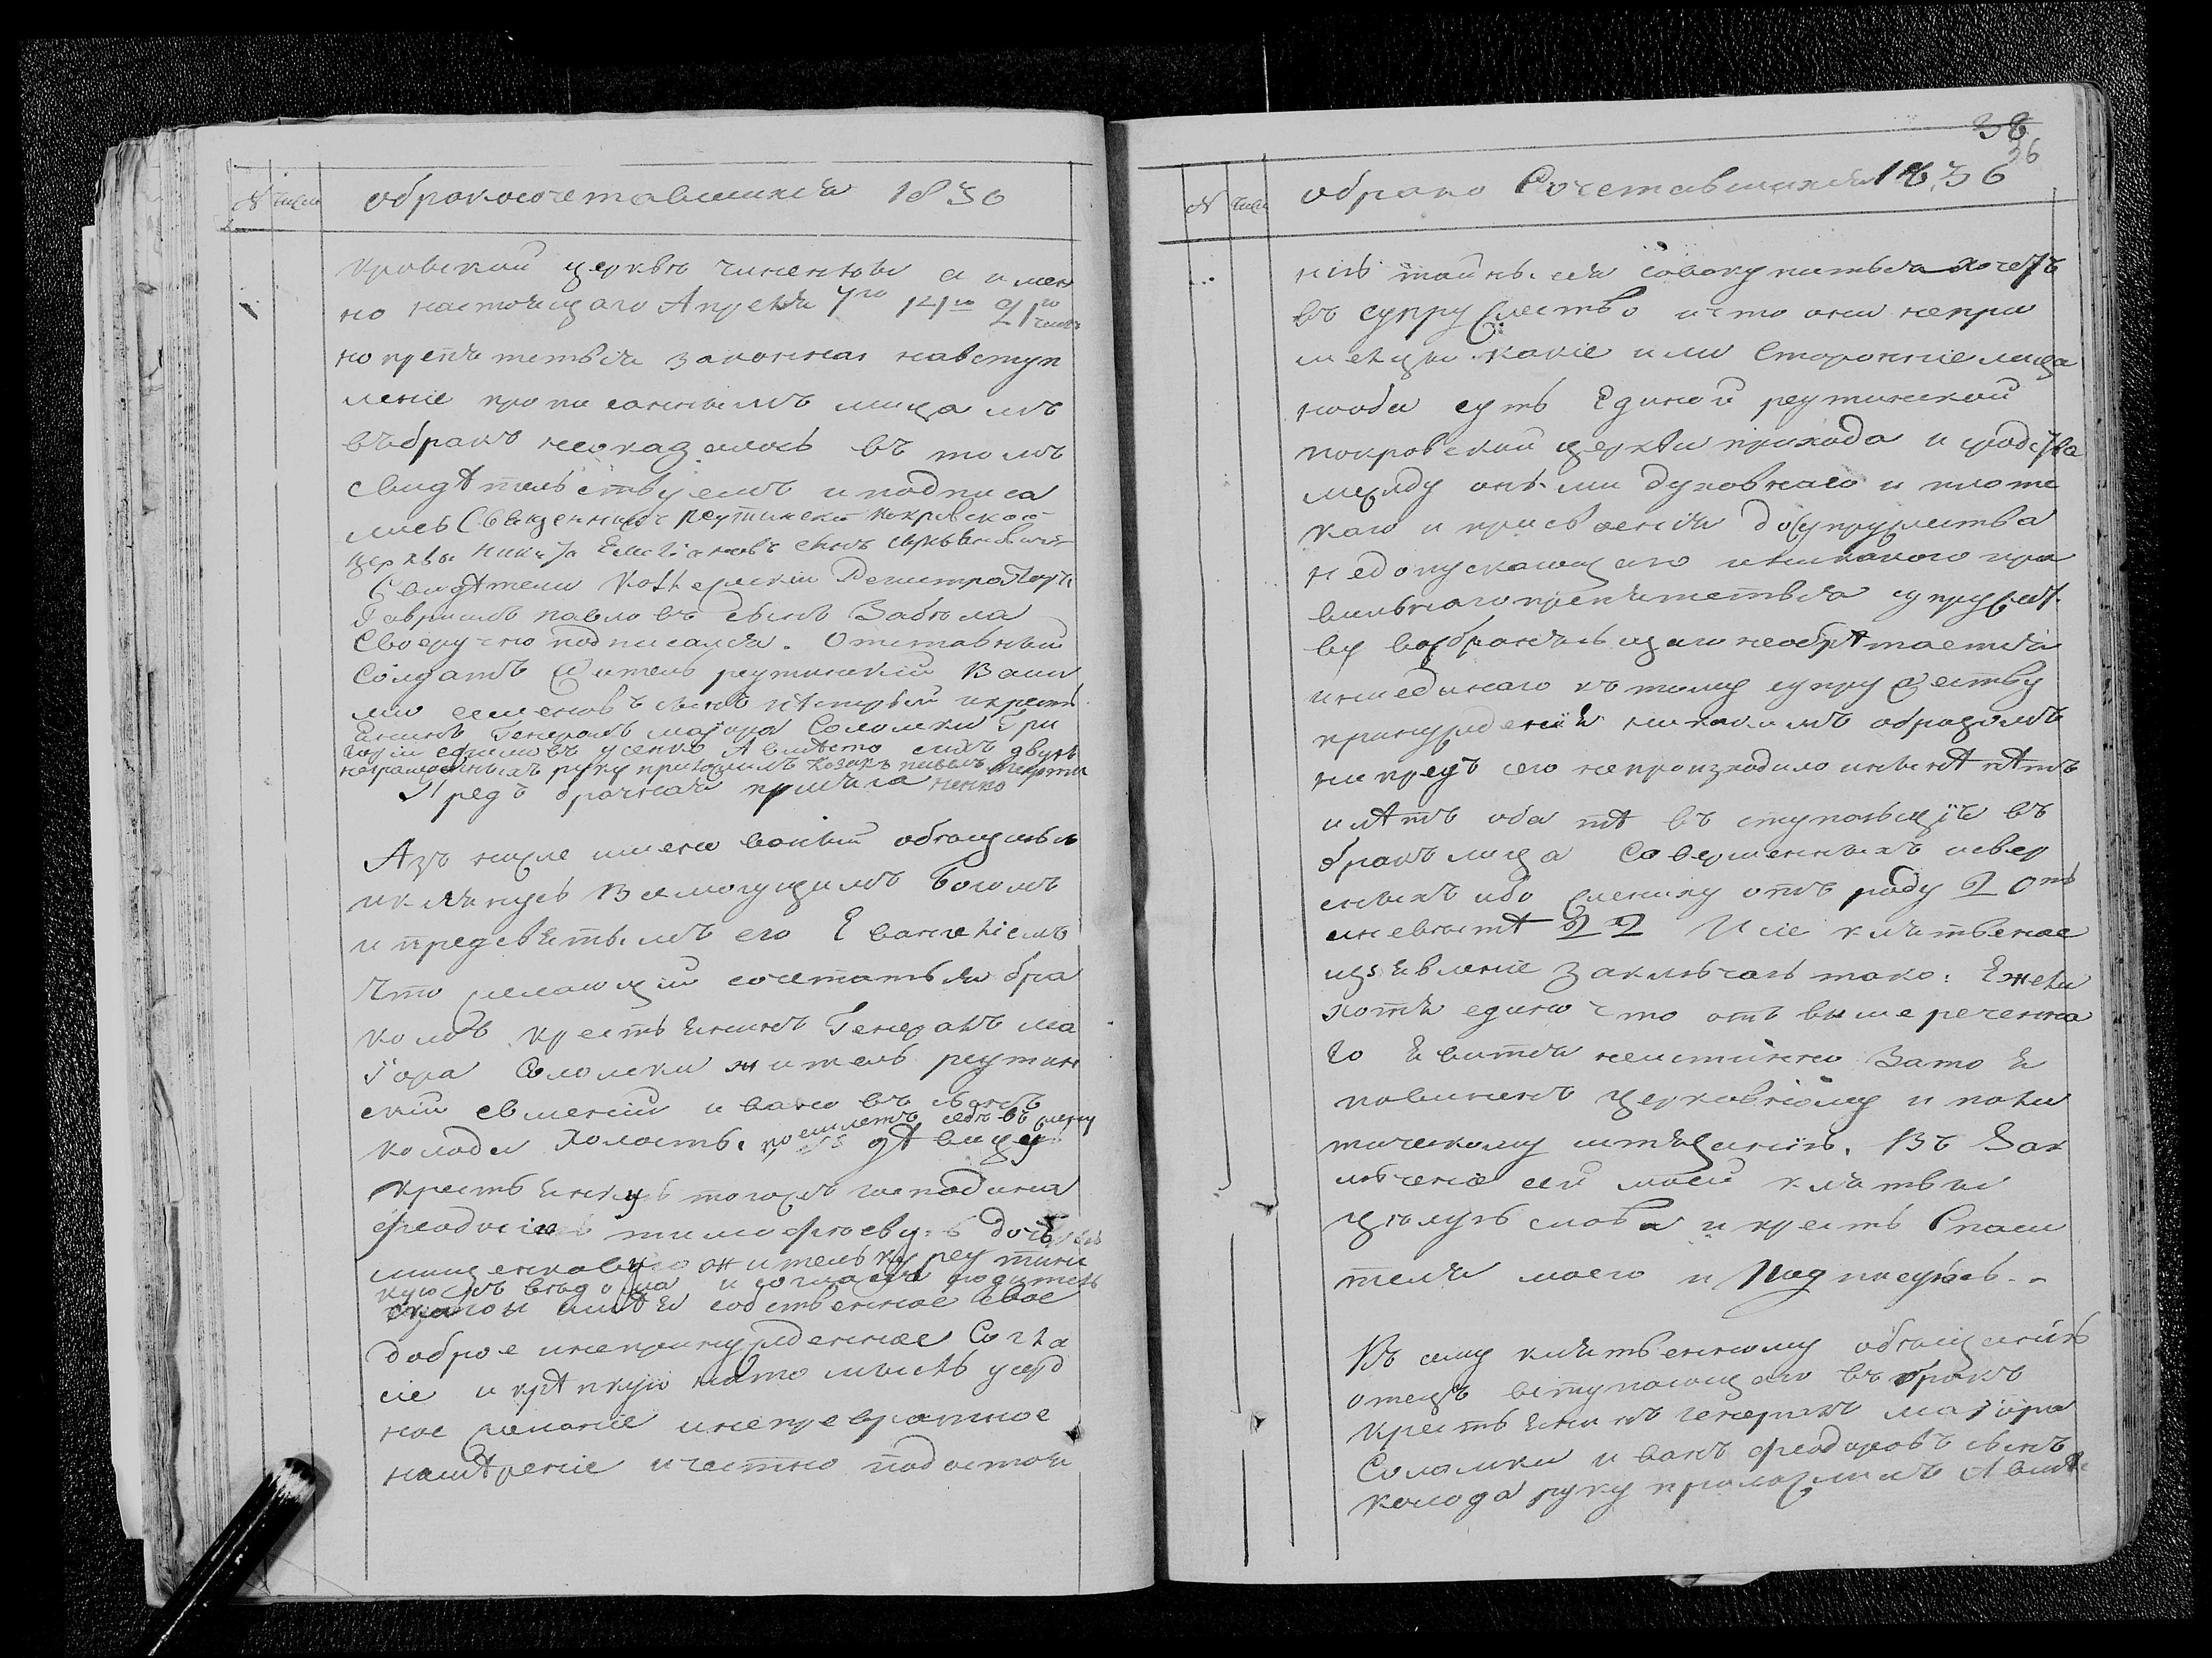 N число обракосочетавшихся 1836
кровской церквѣ чиненны а имен
но настоящаго Апреля 7го 14го 21го числъ
но препятствія законнаго навступ
леніе прописаннымъ лицамъ
въ бракъ неоказалось въ томъ
свидѣтельствуемъ и подписа
лись Священникъ Реутинской Покровской
церквы Никита Емиліановъ сынъ
Свидѣтели Коллежскій Регистраторъ
Гавріилъ павловъ сынъ Забѣла
своеручно подписался. Отставный
солдатъ житель реутинскій Васи
лій семеновъ сынъ и кресть
янинъ Генералъ маіора Соломки Гри
горій ефимовъ усенко А вмѣсто ихъ двухъ
неграмотныхъ руку приложилъ козакъ
Предъ брачная присяга
Азъ ниже именованый обѣщаюсь
и клянусь Всемогущимъ Богомъ
и предсвятымъ его Евангеліемъ
что желающій сочетаться бра
комъ крестьянинъ Генералъ ма
іора Соломки житель реутин
скій евменій ивановъ сынъ
колода Холостъ поемлетъ себѣ въ жену дѣвицу
крестьянку тогожъ господина
феодосію тимофѣеву дочь
мищенкову жительку реутинс
кую съ вѣдома и согласія родителей
имѣя собственное свое
доброе инепринужденное Согла
сіе и крѣпкую нато мысль усерд
ное желаніе инепревратное
намѣреніе и честно подостоя

38
36
N число обрако Сочетавшихся 1836
нію тайны сея совокупиться хочетъ
въ супружество и что они непри
шельцы какіе или Сторонніе лица
нооба суть Единой реутинской
покровской церкви прихода и сродства
между онѣми духовнаго и плотс
каго и присвоенія до супружества
недопускающаго иникакого пра
вильнаго препятствія супружест
ву возбраняющаго необрѣтается
ниединаго къ тому супружеству
принужденія никакимъ образомъ
ни предъ сего непроизходило инынѣ нѣтъ
илѣтъ оба тѣ въ ступающія въ
бракъ лица Совершенныхъ
ибо жениху отъ роду 2
а невестѣ 22 И сіе клятвеное
изявленіе заключаю тако: Ежели
хотя едино что отъ вышереченна
го явится неистинно Зато я
повиненъ церковному и поли
тическому истязанію. Въ Зак
люченіе сей моей клятвы
цѣлую слова и крестъ Спаси
теля моего и Подписуюсь.
Къ сему клятвенному обѣщанію
отецъ вступающаго въ бракъ
крестьянинъ генералъ маіора
Соломки иванъ феодоровъ сынъ
колода руку приложилъ А вмѣс